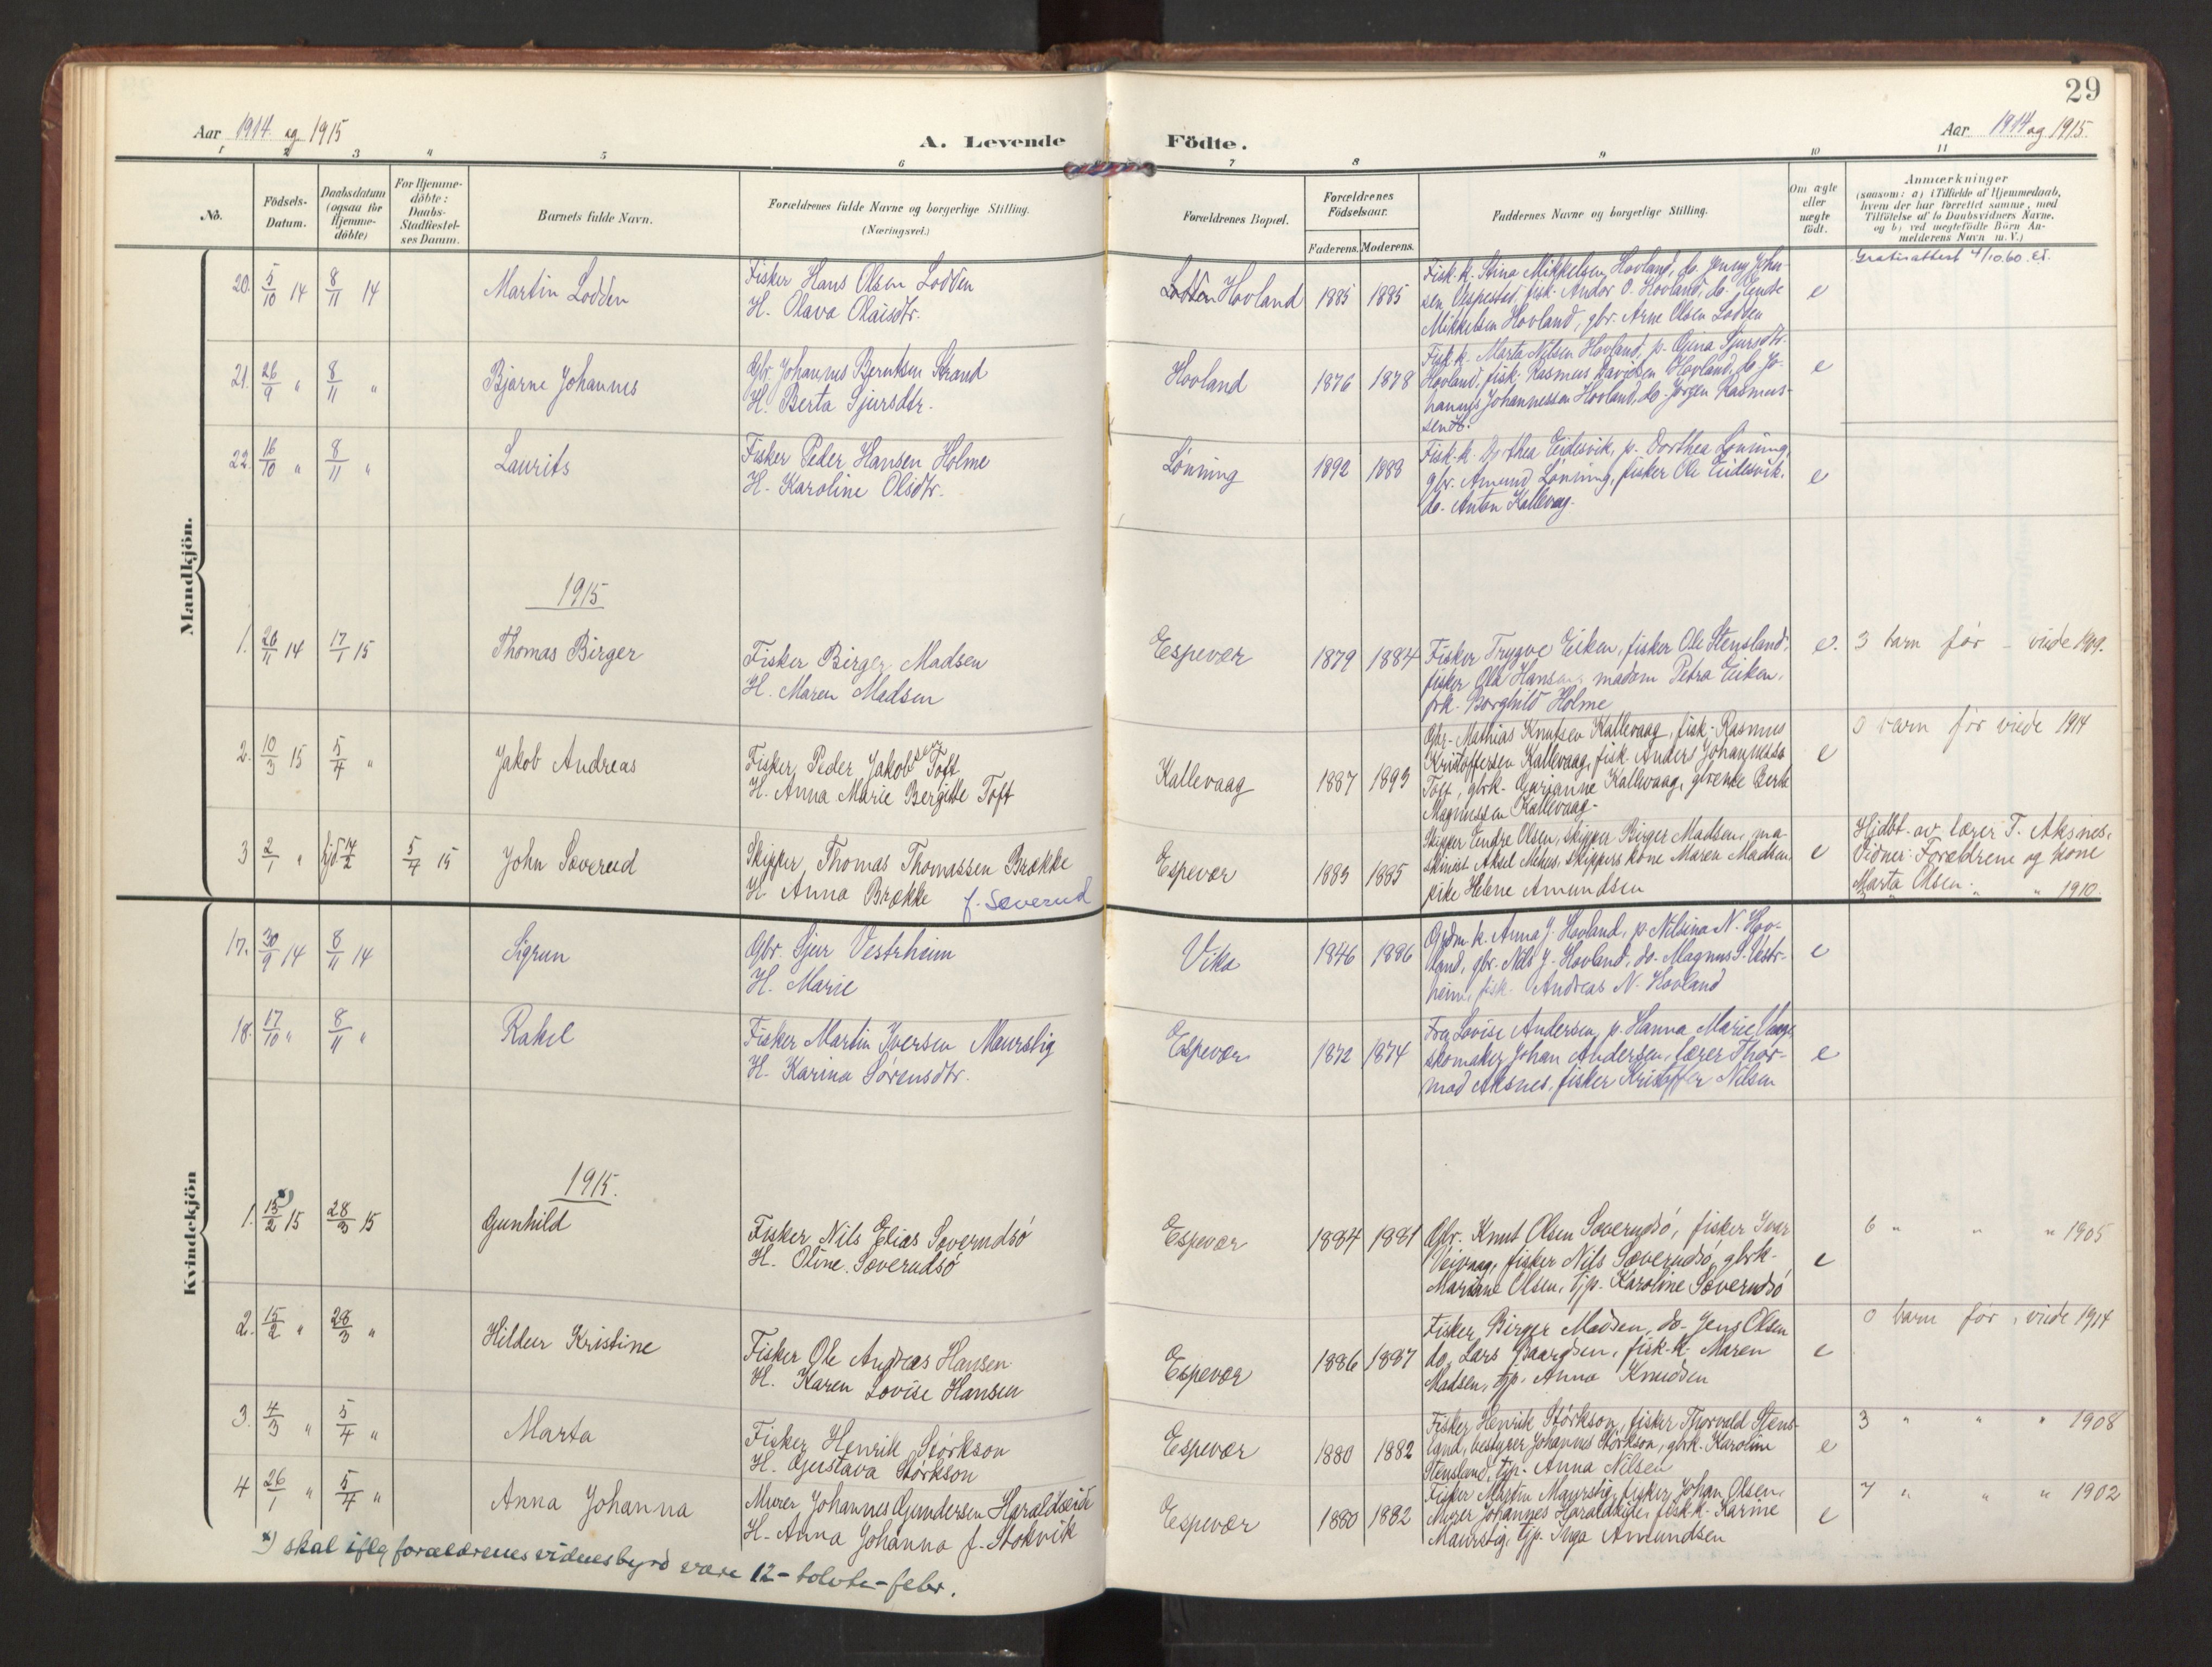 29
Aar 1914 og 1915
A. Levende Födte.
Aar 1914 og 1915.
1 2 3 4 5 6 7 8 9 10 11
No.
Födsels-
Datum.
Daabsdatum
(ogsaa for
Hjemme-
döbte)
For Hjemme-
döbte:
Daabs-
Stadfæstel-
ses Datum.
Barnets fulde Navn.
Forældrenes fulde Navne og borgerlige Stilling.
(Næringsvei.)
Forældrenes Bopæl.
Forældrenes
Födselsaar.
Faderens. Moderens.
Faddernes Navne og borgerlige Stilling.
Om ægte
eller
uægte
födt.
Anmærkninger
(saasom: a) i Tilfælde af Hjemmedaab,
hvem der har forrettet samme, med
Tilföielse af to Daabsvidners Navne,
og b) ved uegtefödte Börn An-
melderens Navn m. V.)
Mandkjön.
20. 5/10 14 8/11 14 Martin Lodden
Fisker Hans Olsen Lodden
H. Olava Olaisdtr.
Lodden Hovland 1885 1885
Fisk.k. Stina Mikkelsen Hovland, do. Jenny Johan-
sen Vespested, fisk. Andor O. Hovland, do. Endre
Mikkelsen Hovland, gbr. Arne Olsen Lodden
e
Gratisattest 4/10.60.
21. 26/9 " 8/11 " Bjarne Johannes
Gbr. Johannes Berntsen Strand
H. Berta Sjursdtr.
Hovland 1876 1878
Fisk.k. Marta Nilsen Hovland, p. Gina Sjursdtr.
Hovland, fisk. Rasmus Davidsen Hovland, do. Jo-
hannes Johannessen Hovland, do. Jørgen Rasmus-
sen
e
22. 16/10 " 8/11 " Laurits
Fisker Peder Hansen Holme
H. Karoline Olsdtr.
Lönning 1892 1888
Fisk.k. Dorthea Eidesvik, p. Dorthea Lønning,
gbr. Amund Lönning, fisker Ole Eidesvik.
do. Anton Kallevag.
e
1915
1. 26/11 14 17/1 15 Thomas Birger
Fisker Birger Madsen
H. Maren Madsen
Espevær 1879 1884
Fisker Trygve Eiken, fisker Ole Stensland,
fisker Ole Hansen, madam Petra Eiken,
frk. Borghild Holme
e. 3 barn før - viede 1909.
2. 10/3 15 5/4 " Jakob Andreas
Fisker Peder Jakobsen Toft
H. Anna Marie Bergitte Toft
Kallevaag 1887 1893
Gbr. Mathias Knutsen Kallevaag, fisk. Rasmus
Kristoffersen Kallevaag, fisk. Anders Johannessen
Toft, gbrk. Marianne Kallevaag, gbrenke Berte
Magnussen Kallevaag-
e 0 barn før viede 1914
3 2/1 " hjd 14/2 5/4 15 John Sæverud
Skipper Thomas Thomassen Brække
H. Anna Brække f. Sæverud
Espevær 1883 1885
Skipper Endre Olsen, skipper Birger Madsen, ma-
skinist Aksel Mehus, skippers kone Maren Madsen,
pike Helene Amundsen
e
Hjdbt. av lærer T. Aksnes.
Vidner: Forældrene og kone
Marta Olsen. " " 1910.
Kvindekjön
17. 30/9 14 8/11 14 Sigrun
Gbr. Sjur Vestrheim
H. Marie
Vika 1846 1886
Grdm.k. Anna J. Hovland, p. Nilsina N. Hov-
land, gbr. Nils J. Hovland, do. Magnus S. Vestr-
heim, fisk. Andreas N. Hovland
e
18. 17/10 " 8/11 " Rakel
Fisker Martin Iversen Maurstig
H. Karina Sørensdtr.
Espevær 1872 1874
Fru Lovise Andersen, p. Hanna Marie Vaage,
skomaker Johan Andersen, lærer Thor-
mod Aksnes, fisker Kristoffer Nilsen
e
1915.
1. 15/2 x) 15 28/3 15 Gunhild
Fisker Nils Elias Sæverudsö
H. Oline Sæverudsö
Espevær 1884 1881
Gbr. Knut Olsen Sæverudsö, fisker Ivar
Veivaag, fisker Nils Sæverudsö, gbrk.
Mariane Olsen, tjp. Karoline Sæverudsö
e
6 " " " 1905
2. 15/2 " 28/3 " Hildur Kristine
Fisker Ole Andreas Hansen
H. Karen Lovise Hansen
Espevær 1886 1887
Fisker Birger Madsen, do. Jens Olsen
do. Lars Baardsen, fisk.k. Maren
Madsen, tjp. Anna Knudsen
e
0 barn før, viede 1914
3. 4/3 " 5/4 " Marta
Fisker Henrik Störkson
H. Gustava Störkson
Espevær 1880 1882
Fisker Henrik Störkson, fisker Thorvald Stens-
land, bestyrer Johannes Störkson, gbrk. Karoline
Stensland, tjp. Anna Nilsen
e
3 " " " 1908
4 26/1 " 5/4 " Anna Johanna
Murer Johannes Gundersen Haraldseide
H. Anna Johanna f. Stokvik
Espevær 1880 1882
Fisker Martin Maurstig, fisker Johan Olsen,
Murer Johannes Haraldseide, fisk.k. Karine
Maurstig, tjp. Inga Amundsen
e
7 " " " 1902
x) skal iflg forældrenes vidnesbyrd være 12 - tolvte - febr.